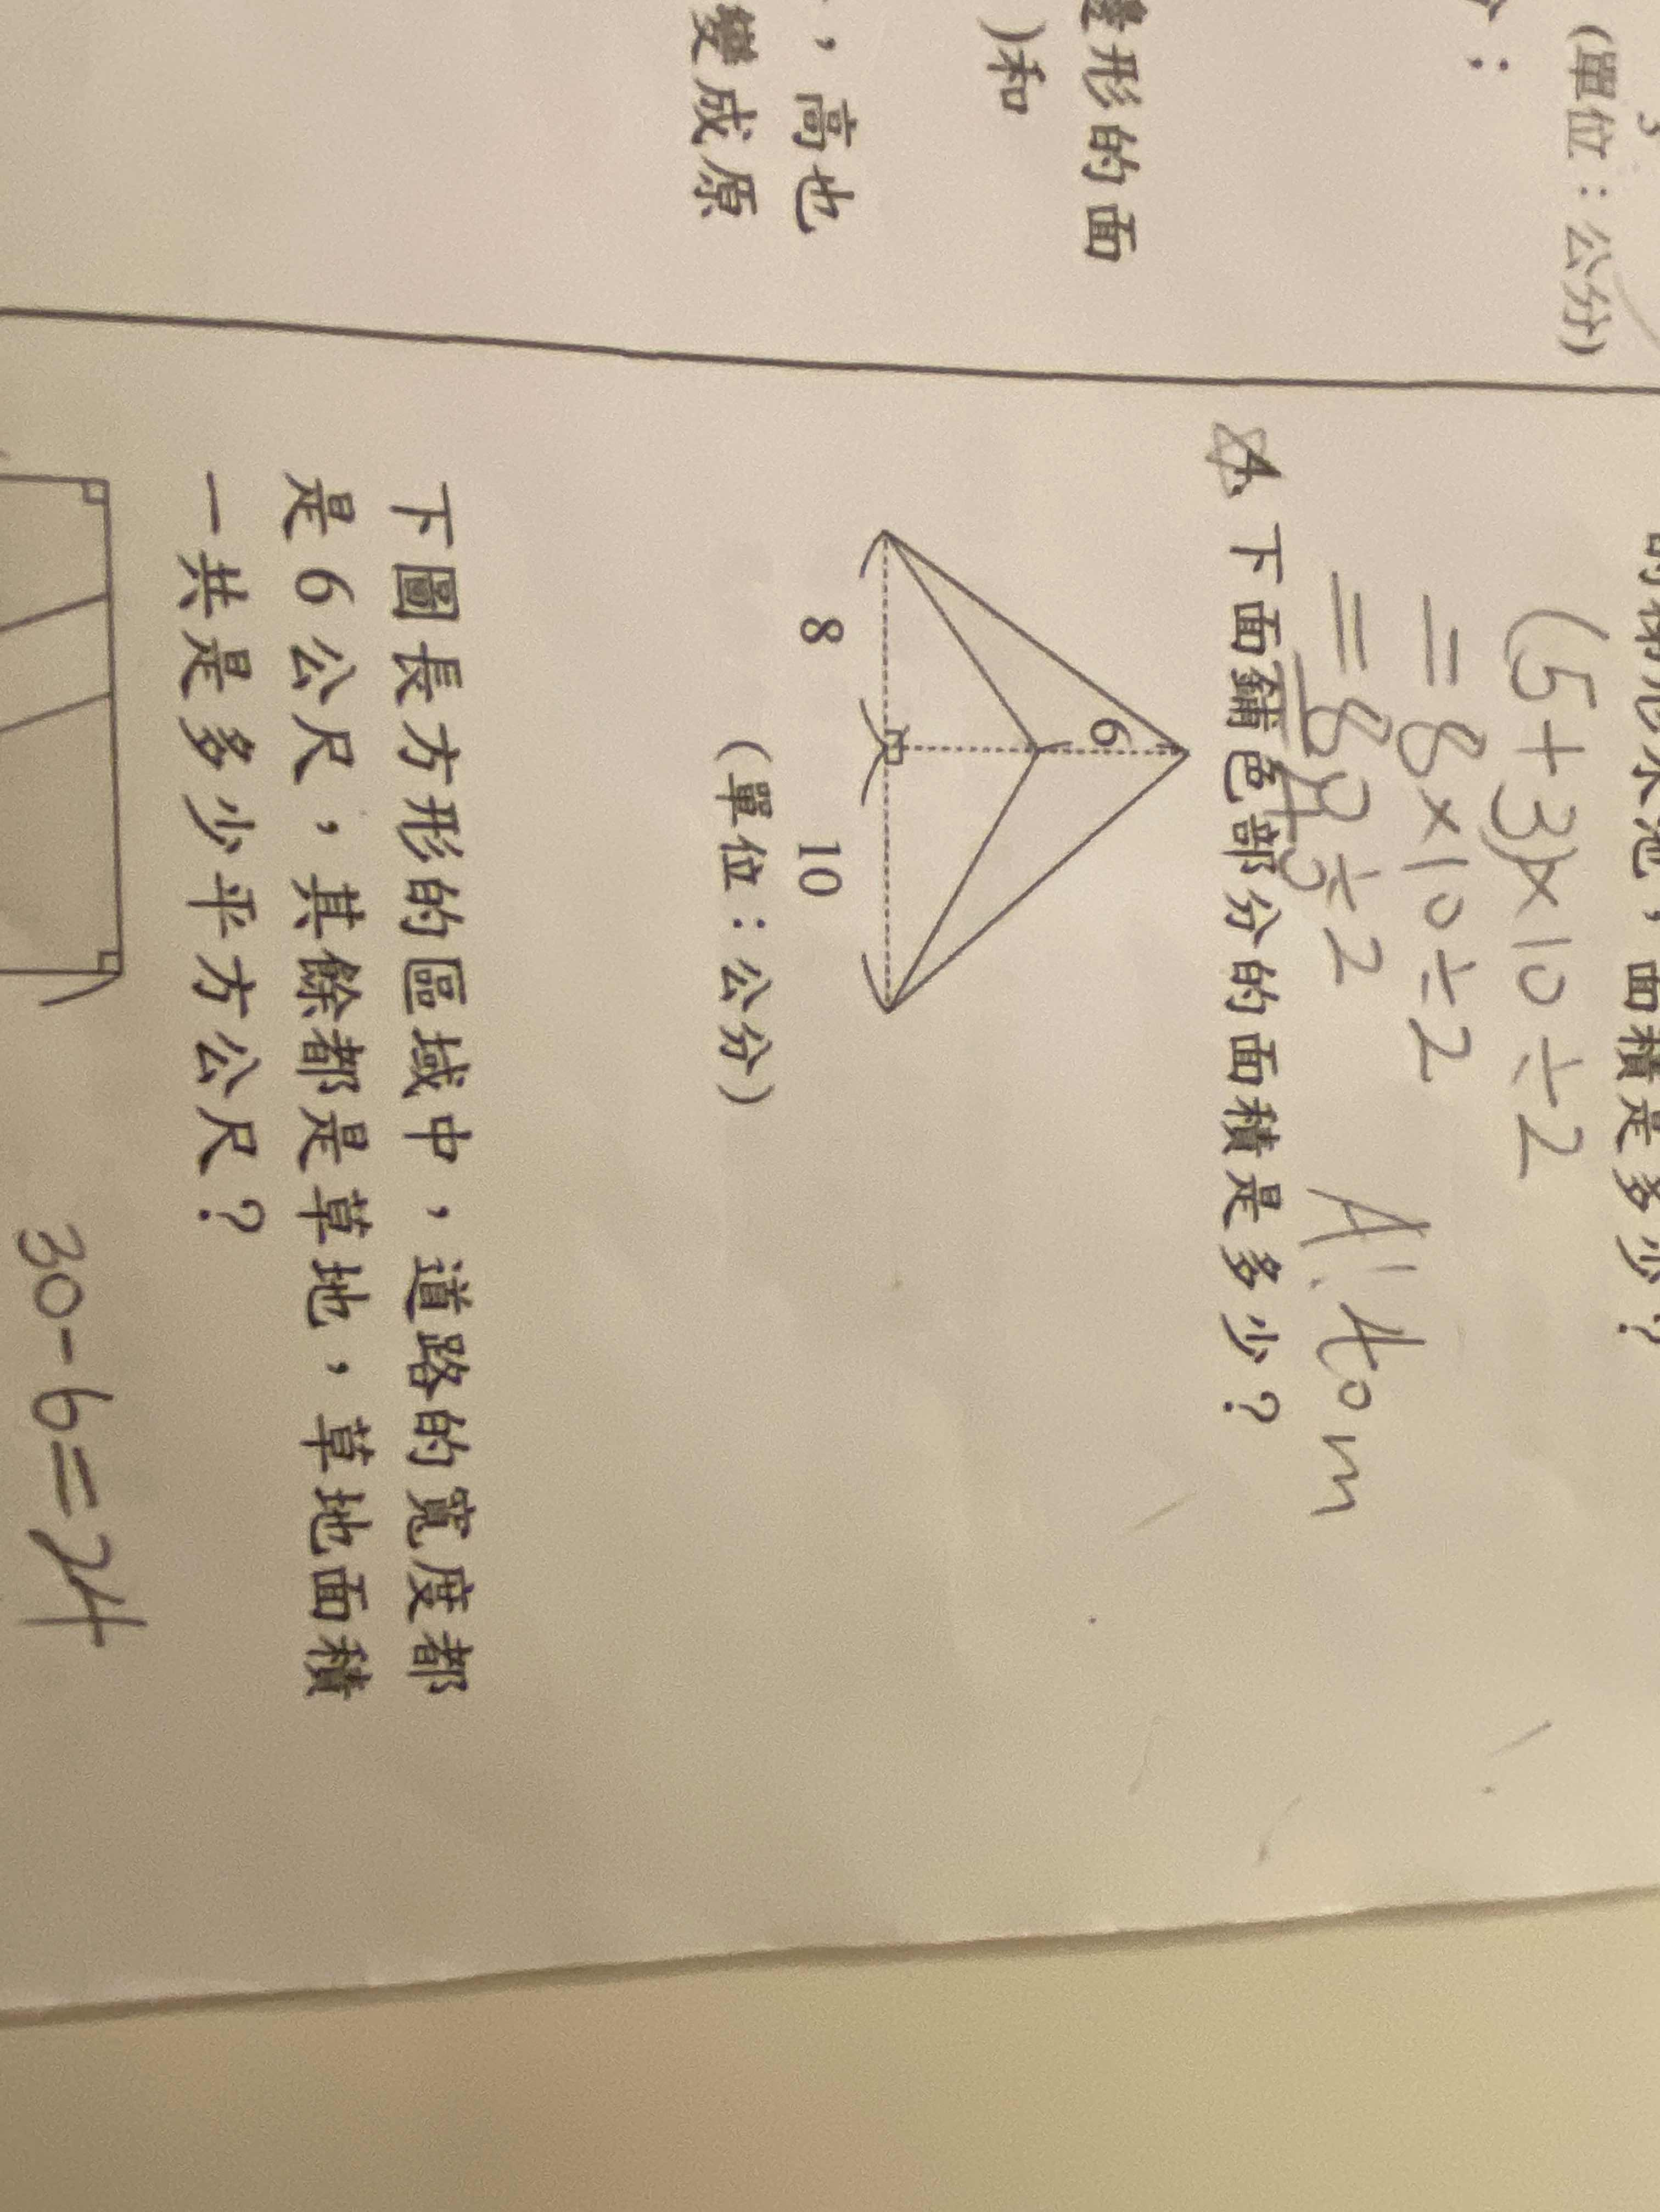 (單位：公分)
：
邊形的面
)和
，高也
變成原
的梯形水池，面積是多少？
(5+3)×10÷2
=8×10÷2
=80÷2
A:40m
4.下面鋪色部分的面積是多少？
6
8
10
(單位：公分)
下圖長方形的區域中，道路的寬度都
是6公尺，其餘都是草地，草地面積
一共是多少平方公尺？
30-6=24